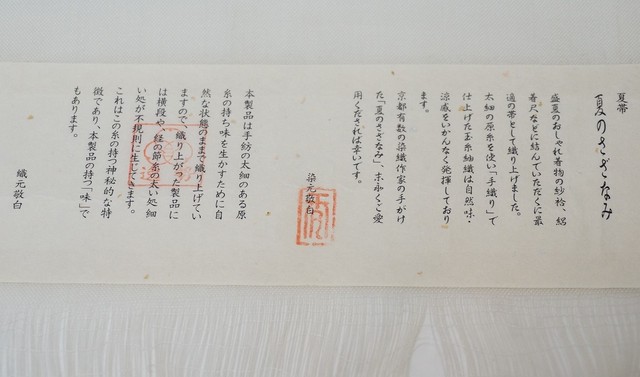 夏帯
夏のさざなみ
盛夏のおしゃれ着物の紗袷、絽
着尺などに結んでいただくに最
適の帯として織り上げました。
太細の原糸を使い「手織り」で
仕上げた玉糸紬織は自然味・
涼感をいかんなく発揮しており
ます。
京都有数の染織作家の手がけ
た「夏のさざなみ」、末永くご愛
用くだされば幸いです。
染元敬白
本製品は手紡の太細のある原
糸の持ち味を生かすために自
然な状態のままで織り上げてい
ますので、織り上がった製品に
は横段や、経の節糸の太い処細
い処が不規則に生じてきます。
これはこの糸の持つ神秘的な特
徴であり、本製品の持つ「味」で
もあります。
織元敬白